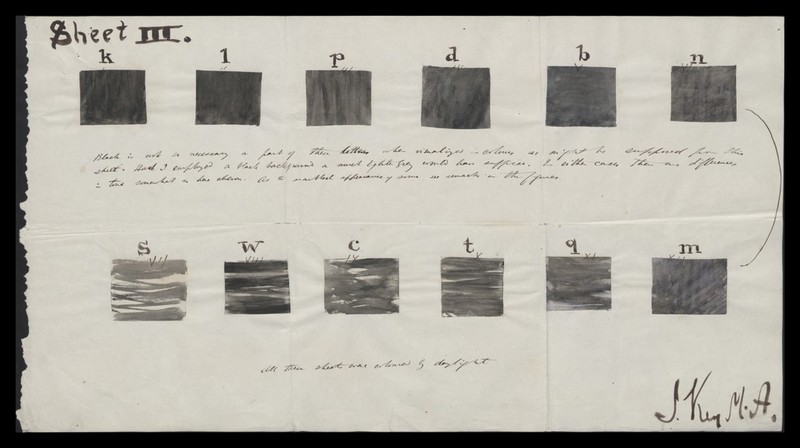 Sheet III.
k l p d b n
Black is not so necessary a part of these letters when visualized in colours as might be supposed from this
sheet. Had I employed a black background a much lighter grey would have sufficed. In either case there are differences
in tone somewhat as here shewn. As to marbled appearance of some see remarks on the figures
s w c t q m
VII VIII IX X XI
All these sheets were coloured by daylight
J. Key M.A.